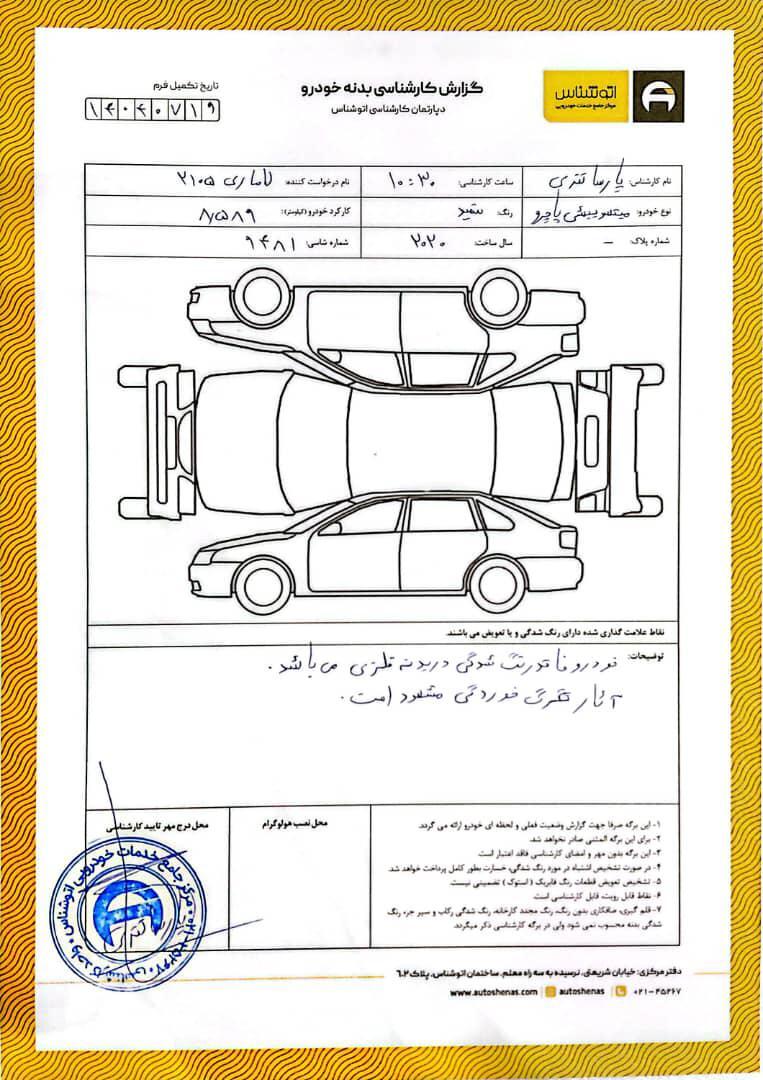 اتوشناس
مرکز جامع خدمات خودرویی
گزارش کارشناسی بدنه خودرو
دپارتمان کارشناسی اتوشناس
تاریخ تکمیل فرم
۱۴۰۴۰۷۱۹
نام کارشناس: پارسا
ساعت کارشناسی: ۱۰:۳۰
نام درخواست کننده: لاماری ۲۱۰۵
نوع خودرو: میتسوبیشی پاجرو
رنگ: سفید
کارکرد خودرو (کیلومتر): ۸۷۵۸۹
شماره پلاک: –
سال ساخت: ۲۰۲۰
شماره شاسی: ۹۴۸۱
نقاط علامت گذاری شده دارای رنگ شدگی و یا تعویض می باشند.
توضیحات: خودرو فاقد رنگ شدگی در بدنه فلزی می باشد.
آثار تگرگ خوردگی مشهود است.
۱- این برگه صرفا جهت گزارش وضعیت فعلی و لحظه ای خودرو ارائه می گردد.
۲- برای این برگه المثنی صادر نخواهد شد.
۳- این برگه بدون مهر و امضای کارشناسی فاقد اعتبار است
۴- در صورت تشخیص اشتباه در مورد رنگ شدگی، خسارت بطور کامل پرداخت خواهد شد.
۵- تشخیص تعویض قطعات رنگ فابریک ( استوک ) تضمینی نیست.
۶- نقاط قابل رویت، قابل کارشناسی است.
۷- قلم گیری، صافکاری بدون رنگ، رنگ مجدد کارخانه، رنگ شدگی رکاب و سپر جزء رنگ
شدگی بدنه محسوب نمی شود ولی در برگه کارشناسی ذکر میگردد.
محل نصب هولوگرام
محل درج مهر تایید کارشناسی
مرکز جامع خدمات خودرویی اتوشناس
واحد کارشناسی
دفتر مرکزی: خیابان شریعتی، نرسیده به سه راه معلم، ساختمان اتوشناس، پلاک ۶۰۲
۰۲۱-۴۵۲۶۷
autoshenas
www.autoshenas.com